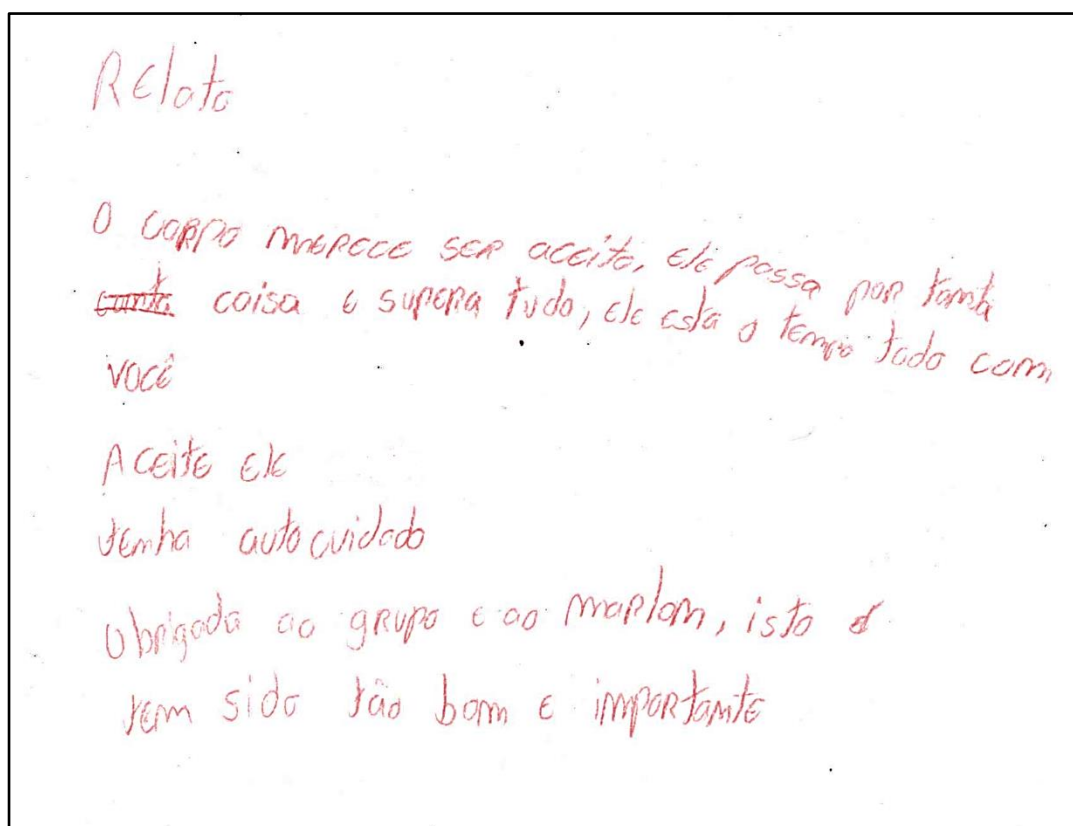 Relato
O corpo merece ser aceito, ele passa por tanta
coisa e supera tudo, ele esta o tempo todo com
você
Aceite ele
tenha autocuidado
Obrigada ao grupo e ao marlom, isto
tem sido tão bom e importante